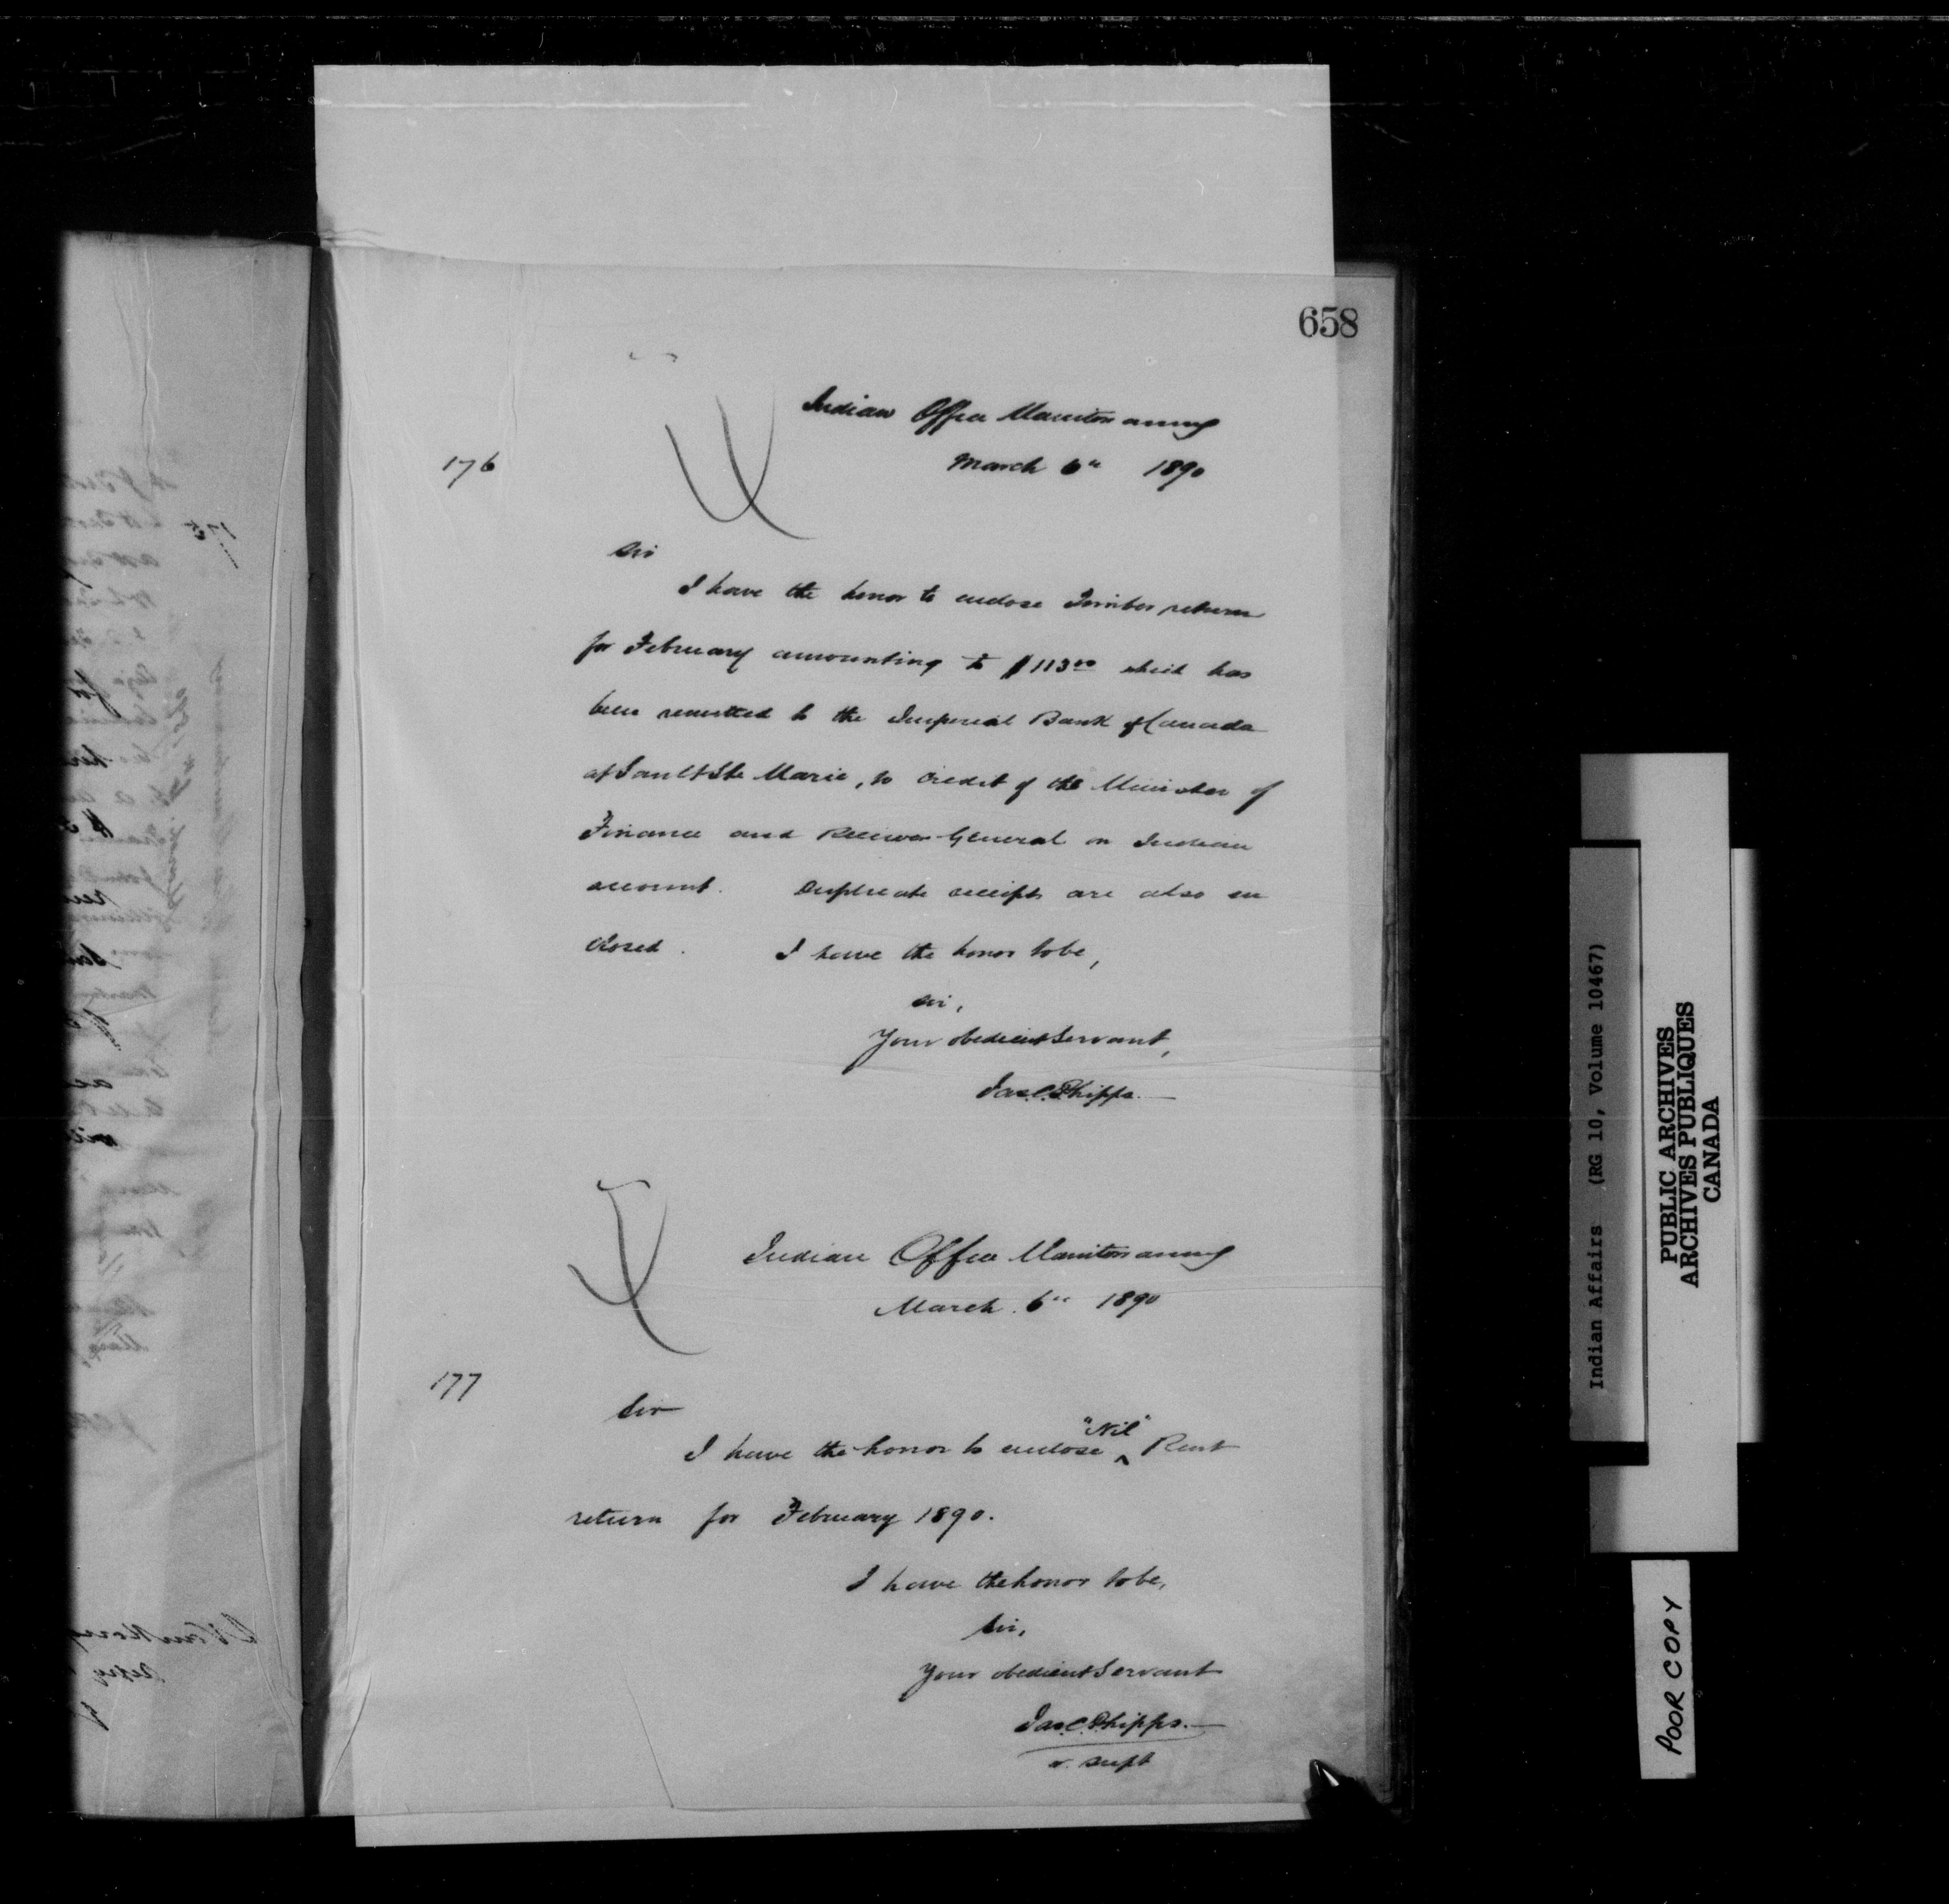 658
Indian Office Manitowaning
176
March 6th 1890
Sir
I have the honor to enclose Timber return
for February amounting to $113.00 which has
been remitted to the Imperial Bank of Canada
at Sault Ste Marie, to credit of the Minister of
Finance and Receiver General on Indian
account. Duplicate receipts are also en
closed. I have the honor to be,
Sir,
Your obedient Servant,
Jas. C. Phipps.
Indian Office Manitowaning
March 6th 1890
177
Sir
I have the honor to enclose "Nil" Rent
return for February 1890.
I have the honor to be,
Sir,
Your obedient Servant
Jas. C. Phipps.
V. Supt
175
Indian Affairs (RG 10, Volume 10467)
PUBLIC ARCHIVES
ARCHIVES PUBLIQUES
CANADA
POOR COPY